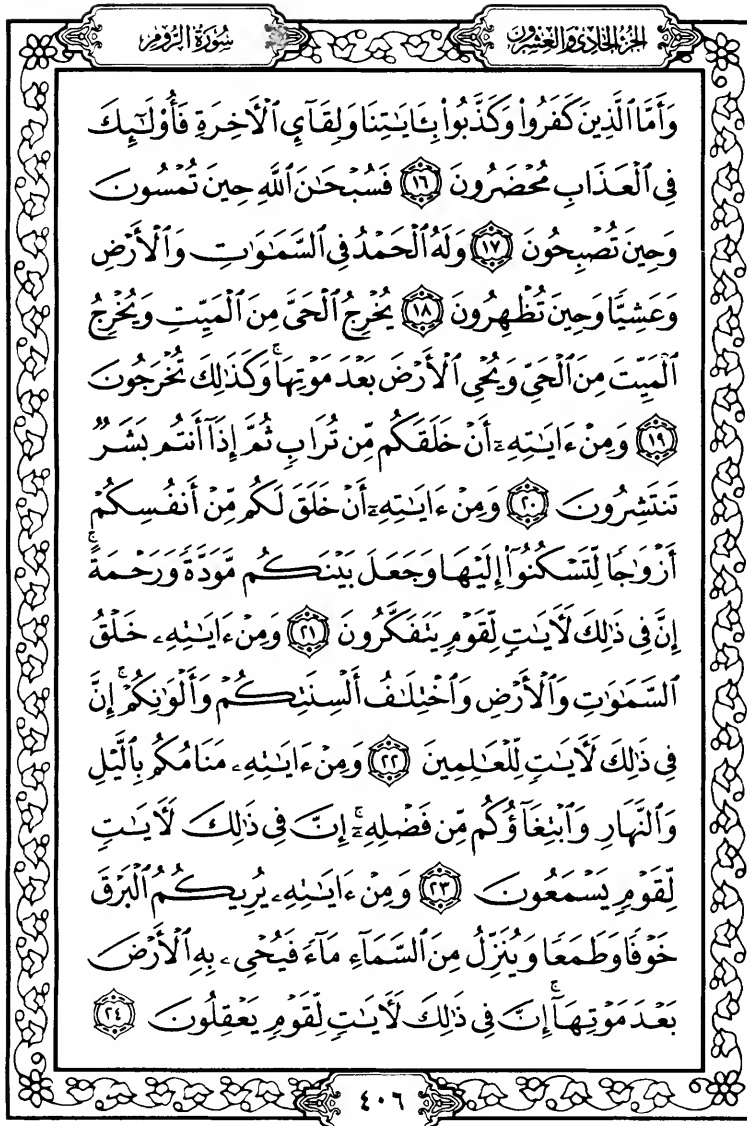 الجزء الحادي والعشرون
سورة الروم
وَأَمَّا ٱلَّذِينَ كَفَرُوا۟ وَكَذَّبُوا۟ بِـَٔايَـٰتِنَا وَلِقَآئِ ٱلْأَخِرَةِ فَأُو۟لَـٰٓئِكَ
فِى ٱلْعَذَابِ مُحْضَرُونَ ١٦ فَسُبْحَـٰنَ ٱللَّهِ حِينَ تُمْسُونَ
وَحِينَ تُصْبِحُونَ ١٧ وَلَهُ ٱلْحَمْدُ فِى ٱلسَّمَـٰوَٰتِ وَٱلْأَرْضِ
وَعَشِيًّا وَحِينَ تُظْهِرُونَ ١٨ يُخْرِجُ ٱلْحَىَّ مِنَ ٱلْمَيِّتِ وَيُخْرِجُ
ٱلْمَيِّتَ مِنَ ٱلْحَىِّ وَيُحْىِ ٱلْأَرْضَ بَعْدَ مَوْتِهَا ۚ وَكَذَٰلِكَ تُخْرَجُونَ
١٩ وَمِنْ ءَايَـٰتِهِۦٓ أَنْ خَلَقَكُم مِّن تُرَابٍ ثُمَّ إِذَآ أَنتُم بَشَرٌ
تَنتَشِرُونَ ٢٠ وَمِنْ ءَايَـٰتِهِۦٓ أَنْ خَلَقَ لَكُم مِّنْ أَنفُسِكُمْ
أَزْوَٰجًا لِّتَسْكُنُوٓا۟ إِلَيْهَا وَجَعَلَ بَيْنَكُم مَّوَدَّةً وَرَحْمَةً ۚ
إِنَّ فِى ذَٰلِكَ لَـَٔايَـٰتٍ لِّقَوْمٍ يَتَفَكَّرُونَ ٢١ وَمِنْ ءَايَـٰتِهِۦ خَلْقُ
ٱلسَّمَـٰوَٰتِ وَٱلْأَرْضِ وَٱخْتِلَـٰفُ أَلْسِنَتِكُمْ وَأَلْوَٰنِكُمْ ۚ إِنَّ
فِى ذَٰلِكَ لَـَٔايَـٰتٍ لِّلْعَـٰلِمِينَ ٢٢ وَمِنْ ءَايَـٰتِهِۦ مَنَامُكُم بِٱلَّيْلِ
وَٱلنَّهَارِ وَٱبْتِغَآؤُكُم مِّن فَضْلِهِۦٓ ۚ إِنَّ فِى ذَٰلِكَ لَـَٔايَـٰتٍ
لِّقَوْمٍ يَسْمَعُونَ ٢٣ وَمِنْ ءَايَـٰتِهِۦ يُرِيكُمُ ٱلْبَرْقَ
خَوْفًا وَطَمَعًا وَيُنَزِّلُ مِنَ ٱلسَّمَآءِ مَآءً فَيُحْىِۦ بِهِ ٱلْأَرْضَ
بَعْدَ مَوْتِهَآ ۚ إِنَّ فِى ذَٰلِكَ لَـَٔايَـٰتٍ لِّقَوْمٍ يَعْقِلُونَ ٢٤
٤٠٦